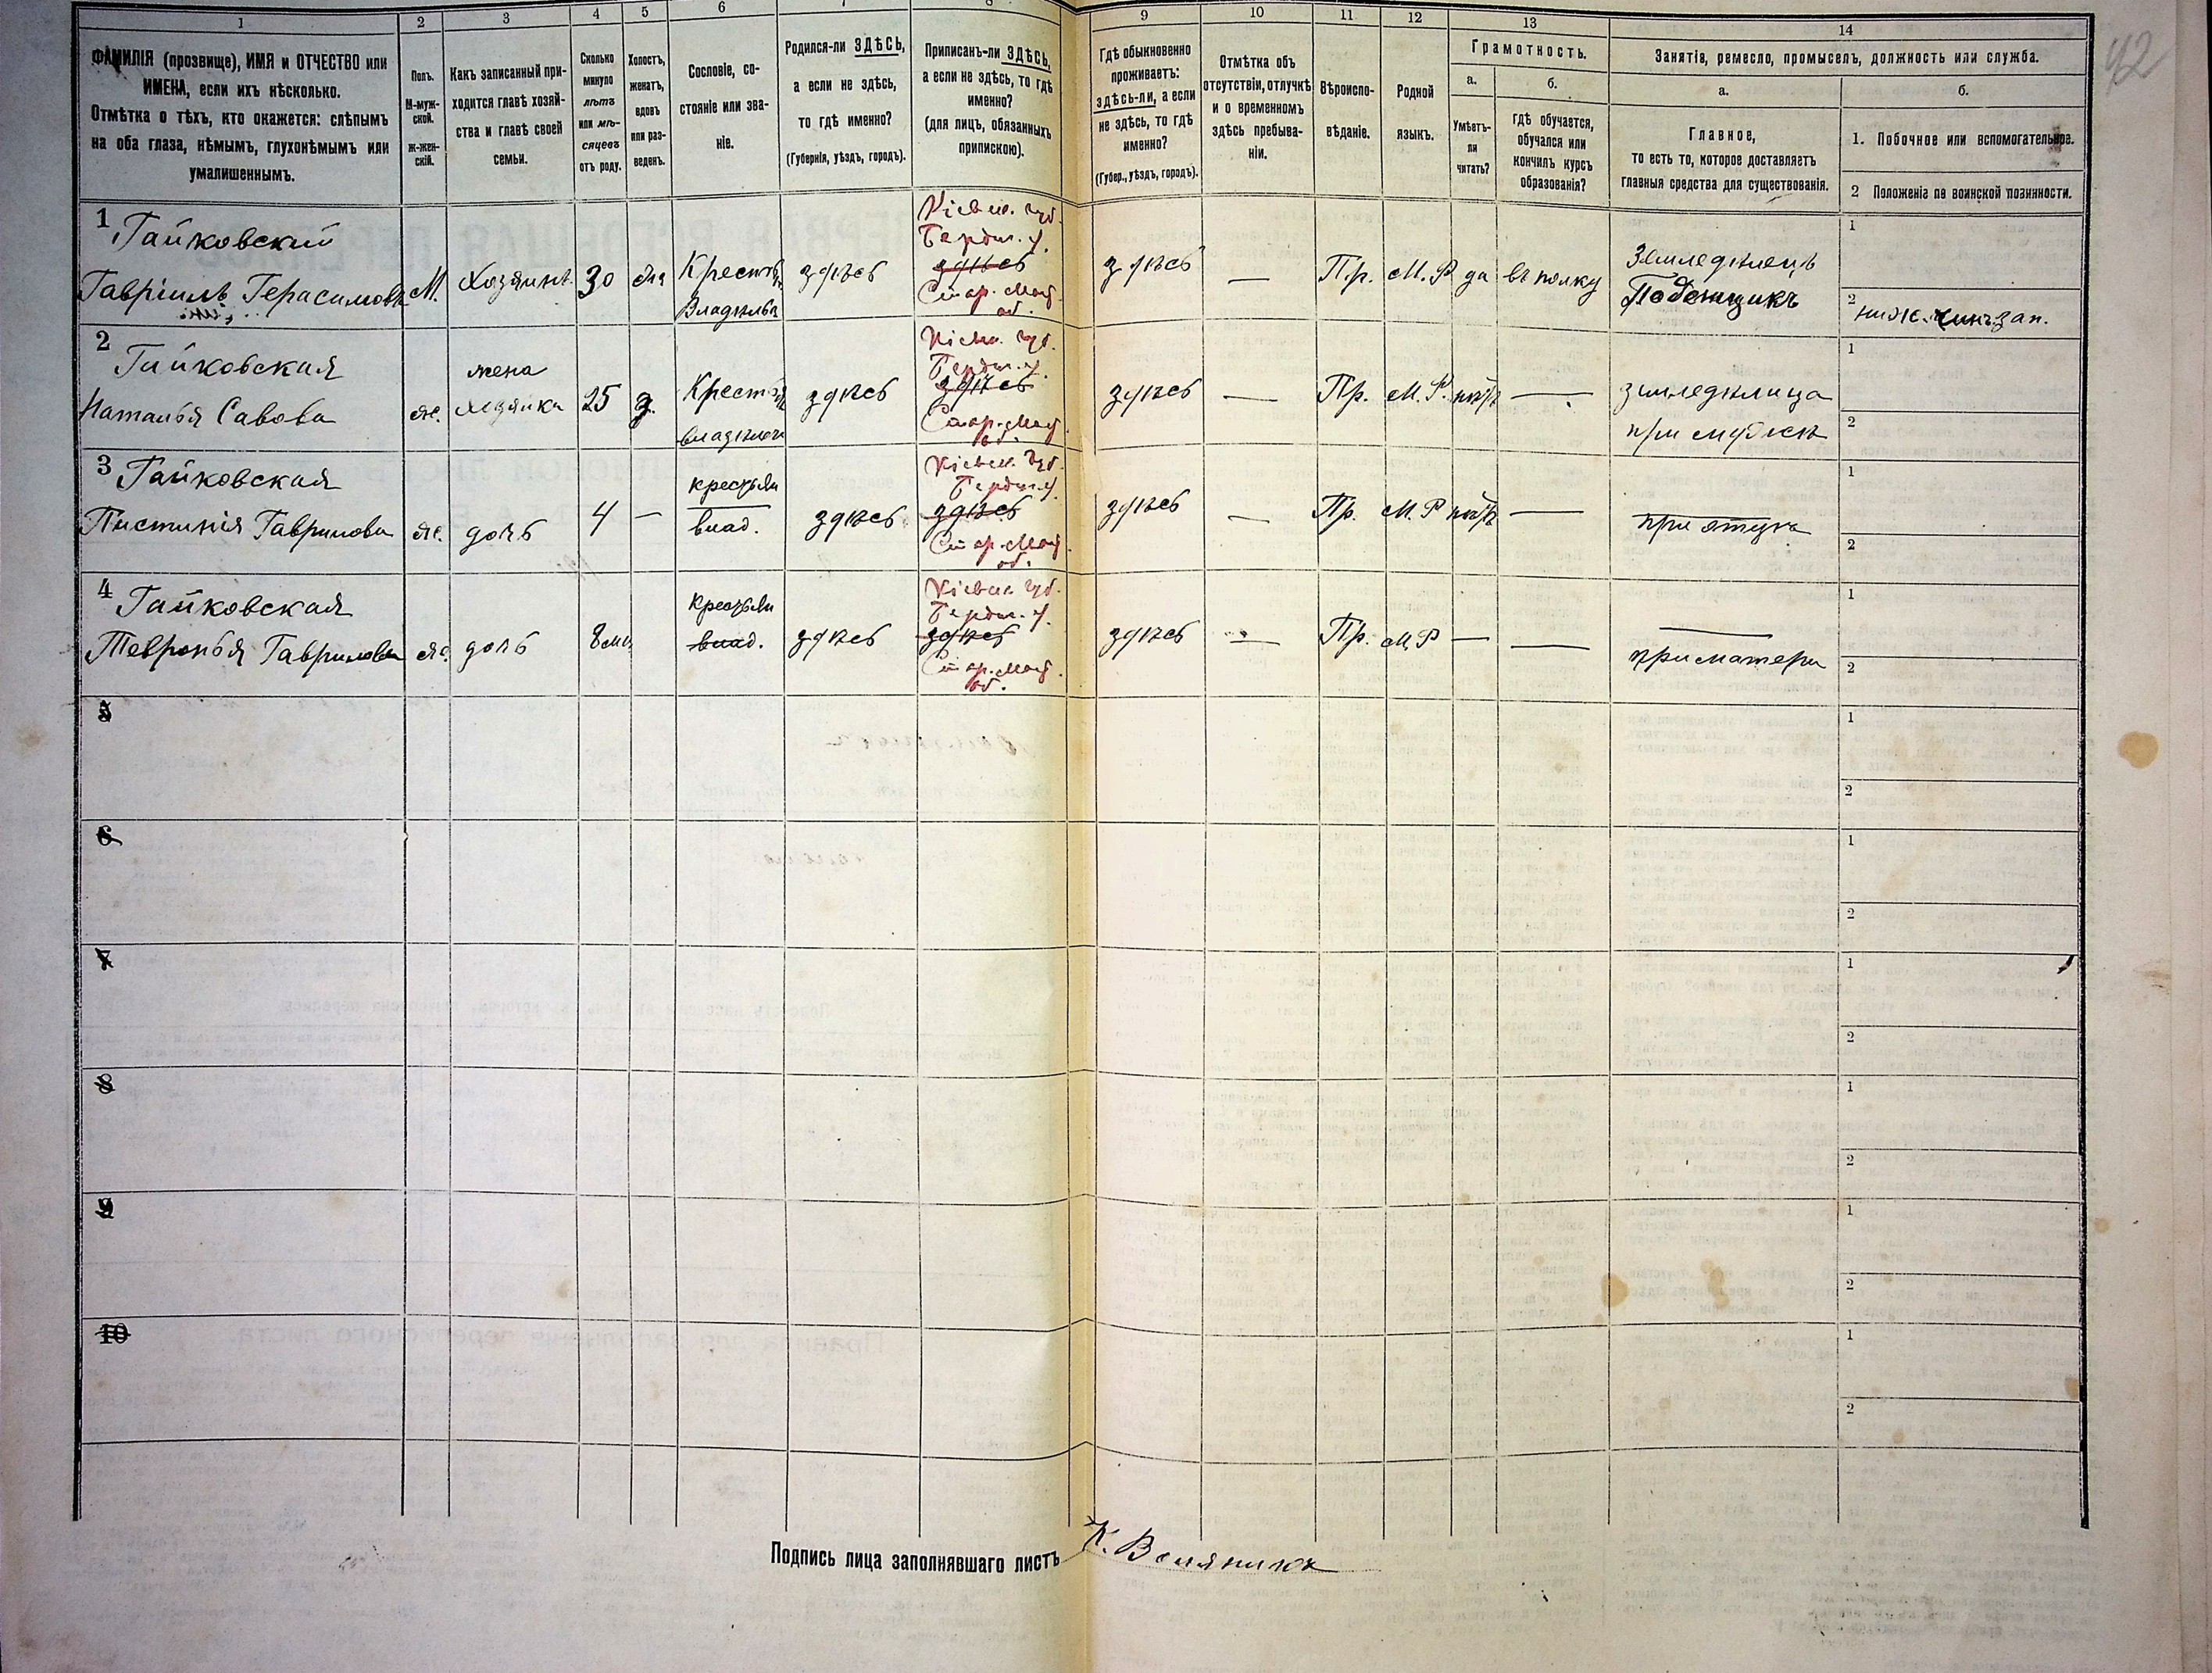 42
1
ФАМИЛІЯ (прозвище), ИМЯ и ОТЧЕСТВО или
ИМЕНА, если ихъ нѣсколько.
Отмѣтка о тѣхъ, кто окажется: слѣпымъ
на оба глаза, нѣмымъ, глухонѣмымъ или
умалишеннымъ.
2
Полъ.
М-муж-
ской.
ж-жен-
скій.
3
Какъ записанный при-
ходится главѣ хозяй-
ства и главѣ своей
семьи.
4
Сколько
минуло
лѣтъ
или мѣ-
сяцевъ
отъ роду.
5
Холостъ,
женатъ,
вдовъ
или раз-
веденъ.
6
Сословіе, со-
стояніе или зва-
ніе.
7
Родился-ли ЗДѢСЬ,
а если не здѣсь,
то гдѣ именно?
(Губернія, уѣздъ, городъ).
8
Приписанъ-ли ЗДѢСЬ,
а если не здѣсь, то гдѣ
именно?
(для лицъ, обязанныхъ
припискою).
9
Гдѣ обыкновенно
проживаетъ:
здѣсь-ли, а если
не здѣсь, то гдѣ
именно?
(Губер., уѣздъ, городъ).
10
Отмѣтка объ
отсутствіи, отлучкѣ
и о временномъ
здѣсь пребыва-
ніи.
11
Вѣроиспо-
вѣданіе.
12
Родной
языкъ.
13
Грамотность.
а.
Умѣетъ-
ли
читать?
б.
гдѣ обучается,
обучался или
кончилъ курсъ
образованія?
14
Занятія, ремесло, промыселъ, должность или служба.
а.
Главное,
то есть то, которое доставляетъ
главныя средства для существованія.
б.
1. Побочное или вспомогательное.
2 Положеніе по воинской повинности.
1
Гайковский
Гавріилъ Герасимовъ
М.
Хозяинъ
30
Крестья
Владѣльч
здѣсь
Кіевск. губ.
Бердич. у.
здѣсь
Стар. Мост
об.
здѣсь
—
Пр.
М. Р
да
въ полку
Земледѣлецъ
Поденщикъ
1
2
ниж. чинъ зап.
2
Гайковская
Наталья Савова
ж.
жена
хозяина
25
з.
Крестья
владѣльч
здѣсь
Кіевск. губ.
Бердич. у.
здѣсь
Стар. Мост
об.
здѣсь
—
Пр.
М. Р.
нѣтъ
—
земледѣлица
при мужѣ
1
2
3
Гайковская
Пистинія Гаврилова
ж.
дочь
4
—
крестьян
влад.
здѣсь
Кіевск. губ.
Бердич. у.
здѣсь
Стар. Мост
об.
здѣсь
—
Пр.
М. Р
нѣтъ
—
при отцѣ
1
2
4
Гайковская
Февронья Гаврилова
ж.
дочь
8 мц.
крестьян
влад.
здѣсь
Кіевск. губ.
Бердич. у.
здѣсь
Стар. Мост
об.
здѣсь
—
Пр.
М. Р
—
—
при матери
1
2
5
1
2
6
1
2
7
1
2
8
1
2
9
1
2
10
1
2
Подпись лица заполнявшаго листъ